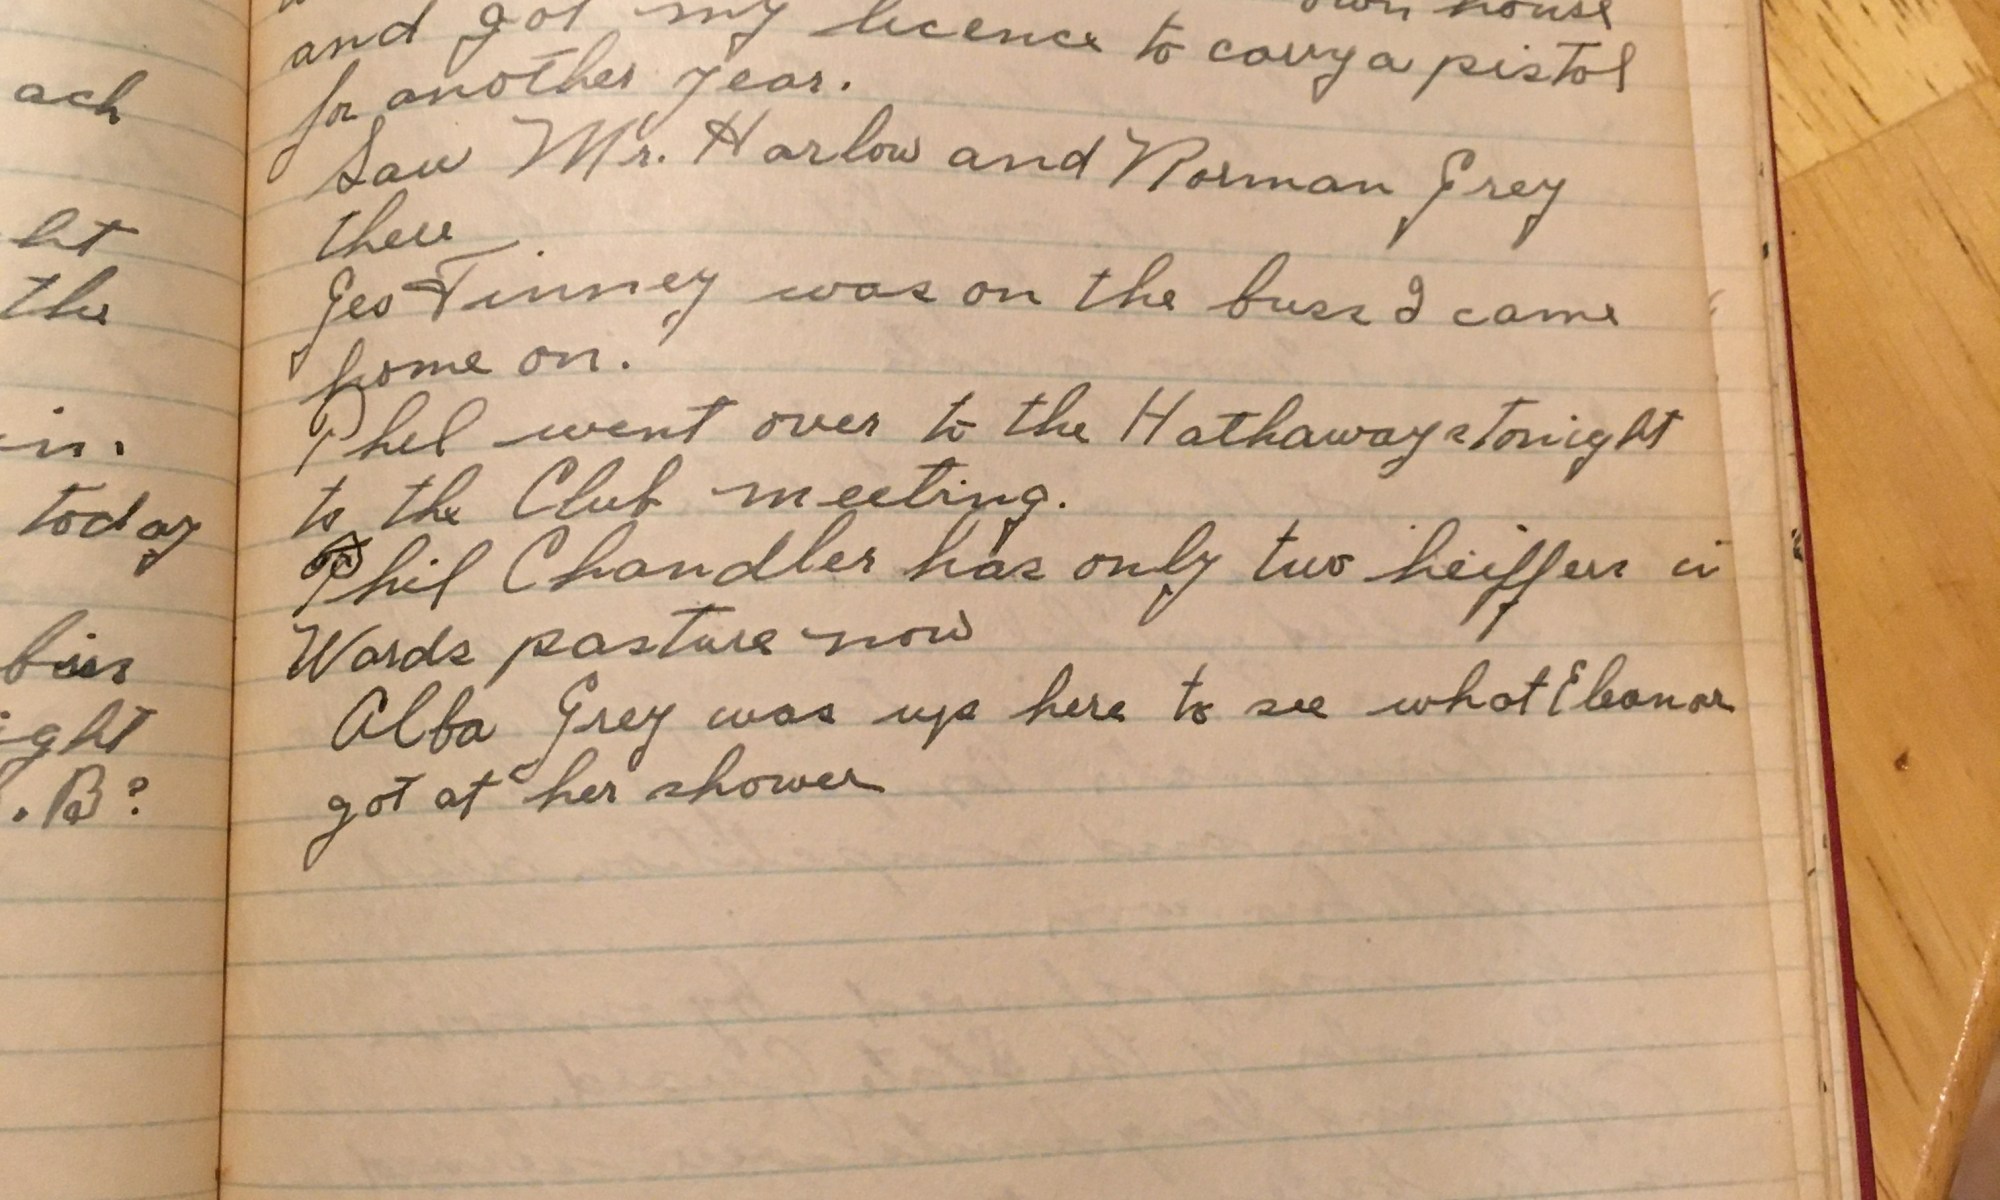 ach
ht
the
in.
today
ight
. B?
own house
and got my licence to carry a pistol
for another year.
Saw Mr. Harlow and Norman Grey
there
Geo Finney was on the buss I came
home on.
Phil went over to the Hathaways tonight
to the Club meeting.
Phil Chandler has only two heiffers in
Wards pasture now
Alba Grey was up here to see what Eleanor
got at her shower